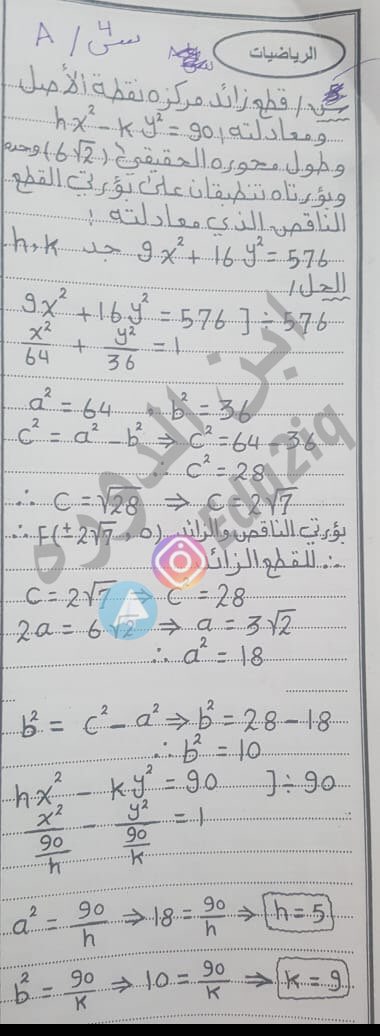 الرياضيات
س٤ / A
س/ قطع زائد مركزه نقطة الأصل
ومعادلته hx² - ky² = 90
وطول محوره الحقيقي (6√2) وحدة
وبؤرتاه تنطبقان على بؤرتي القطع
الناقص الذي معادلته
9x² + 16y² = 576 جد h,k
الحل/
9x² + 16y² = 576 ] ÷ 576
x²/64 + y²/36 = 1
a² = 64 , b² = 36
c² = a² - b² ⇒ c² = 64 - 36
∴ c² = 28
∴ c = √28 ⇒ c = 2√7
∴ F(±2√7, 0) بؤرتي الناقص والزائد
∴ للقطع الزائد
c = 2√7 ⇒ c² = 28
2a = 6√2 ⇒ a = 3√2
∴ a² = 18
b² = c² - a² ⇒ b² = 28 - 18
∴ b² = 10
hx² - ky² = 90 ] ÷ 90
x²/(90/h) - y²/(90/k) = 1
a² = 90/h ⇒ 18 = 90/h ⇒ h = 5
b² = 90/k ⇒ 10 = 90/k ⇒ k = 9
ابن الدورة
Edu2iq